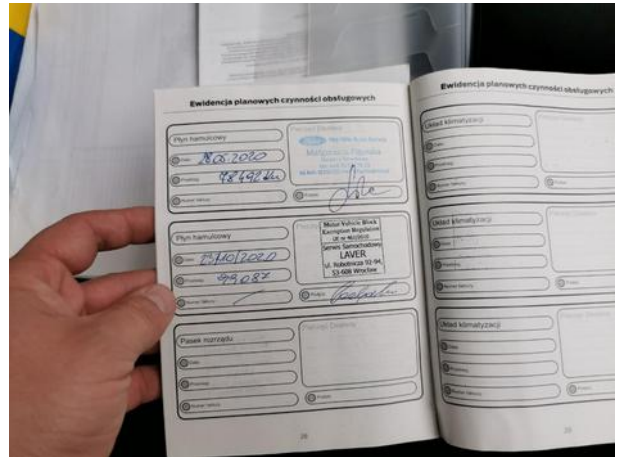 Ewidencja planowych czynności obsługowych
Płyn hamulcowy
Data:
28.05.2020
Przebieg:
78492 km
Numer faktury:
Pieczęć Dealera
Podpis:
Płyn hamulcowy
Data:
23/10/2020
Przebieg:
99087
Numer faktury:
Motor Vehicle Block
Exemption Regulation
UE nr 461/2010
Serwis Samochodowy
LAVER
ul. Robotnicza 92-94,
53-608 Wrocław
Podpis:
Pasek rozrządu
Data:
Przebieg:
Numer faktury:
Pieczęć Dealera
Podpis:
28
Ewidencja planowych czynności obsługowych
Układ klimatyzacji
Data:
Przebieg:
Numer faktury:
Pieczęć Dealera
Podpis:
Układ klimatyzacji
Data:
Przebieg:
Numer faktury:
Podpis:
Układ klimatyzacji
Data:
Przebieg:
Numer faktury:
Podpis: